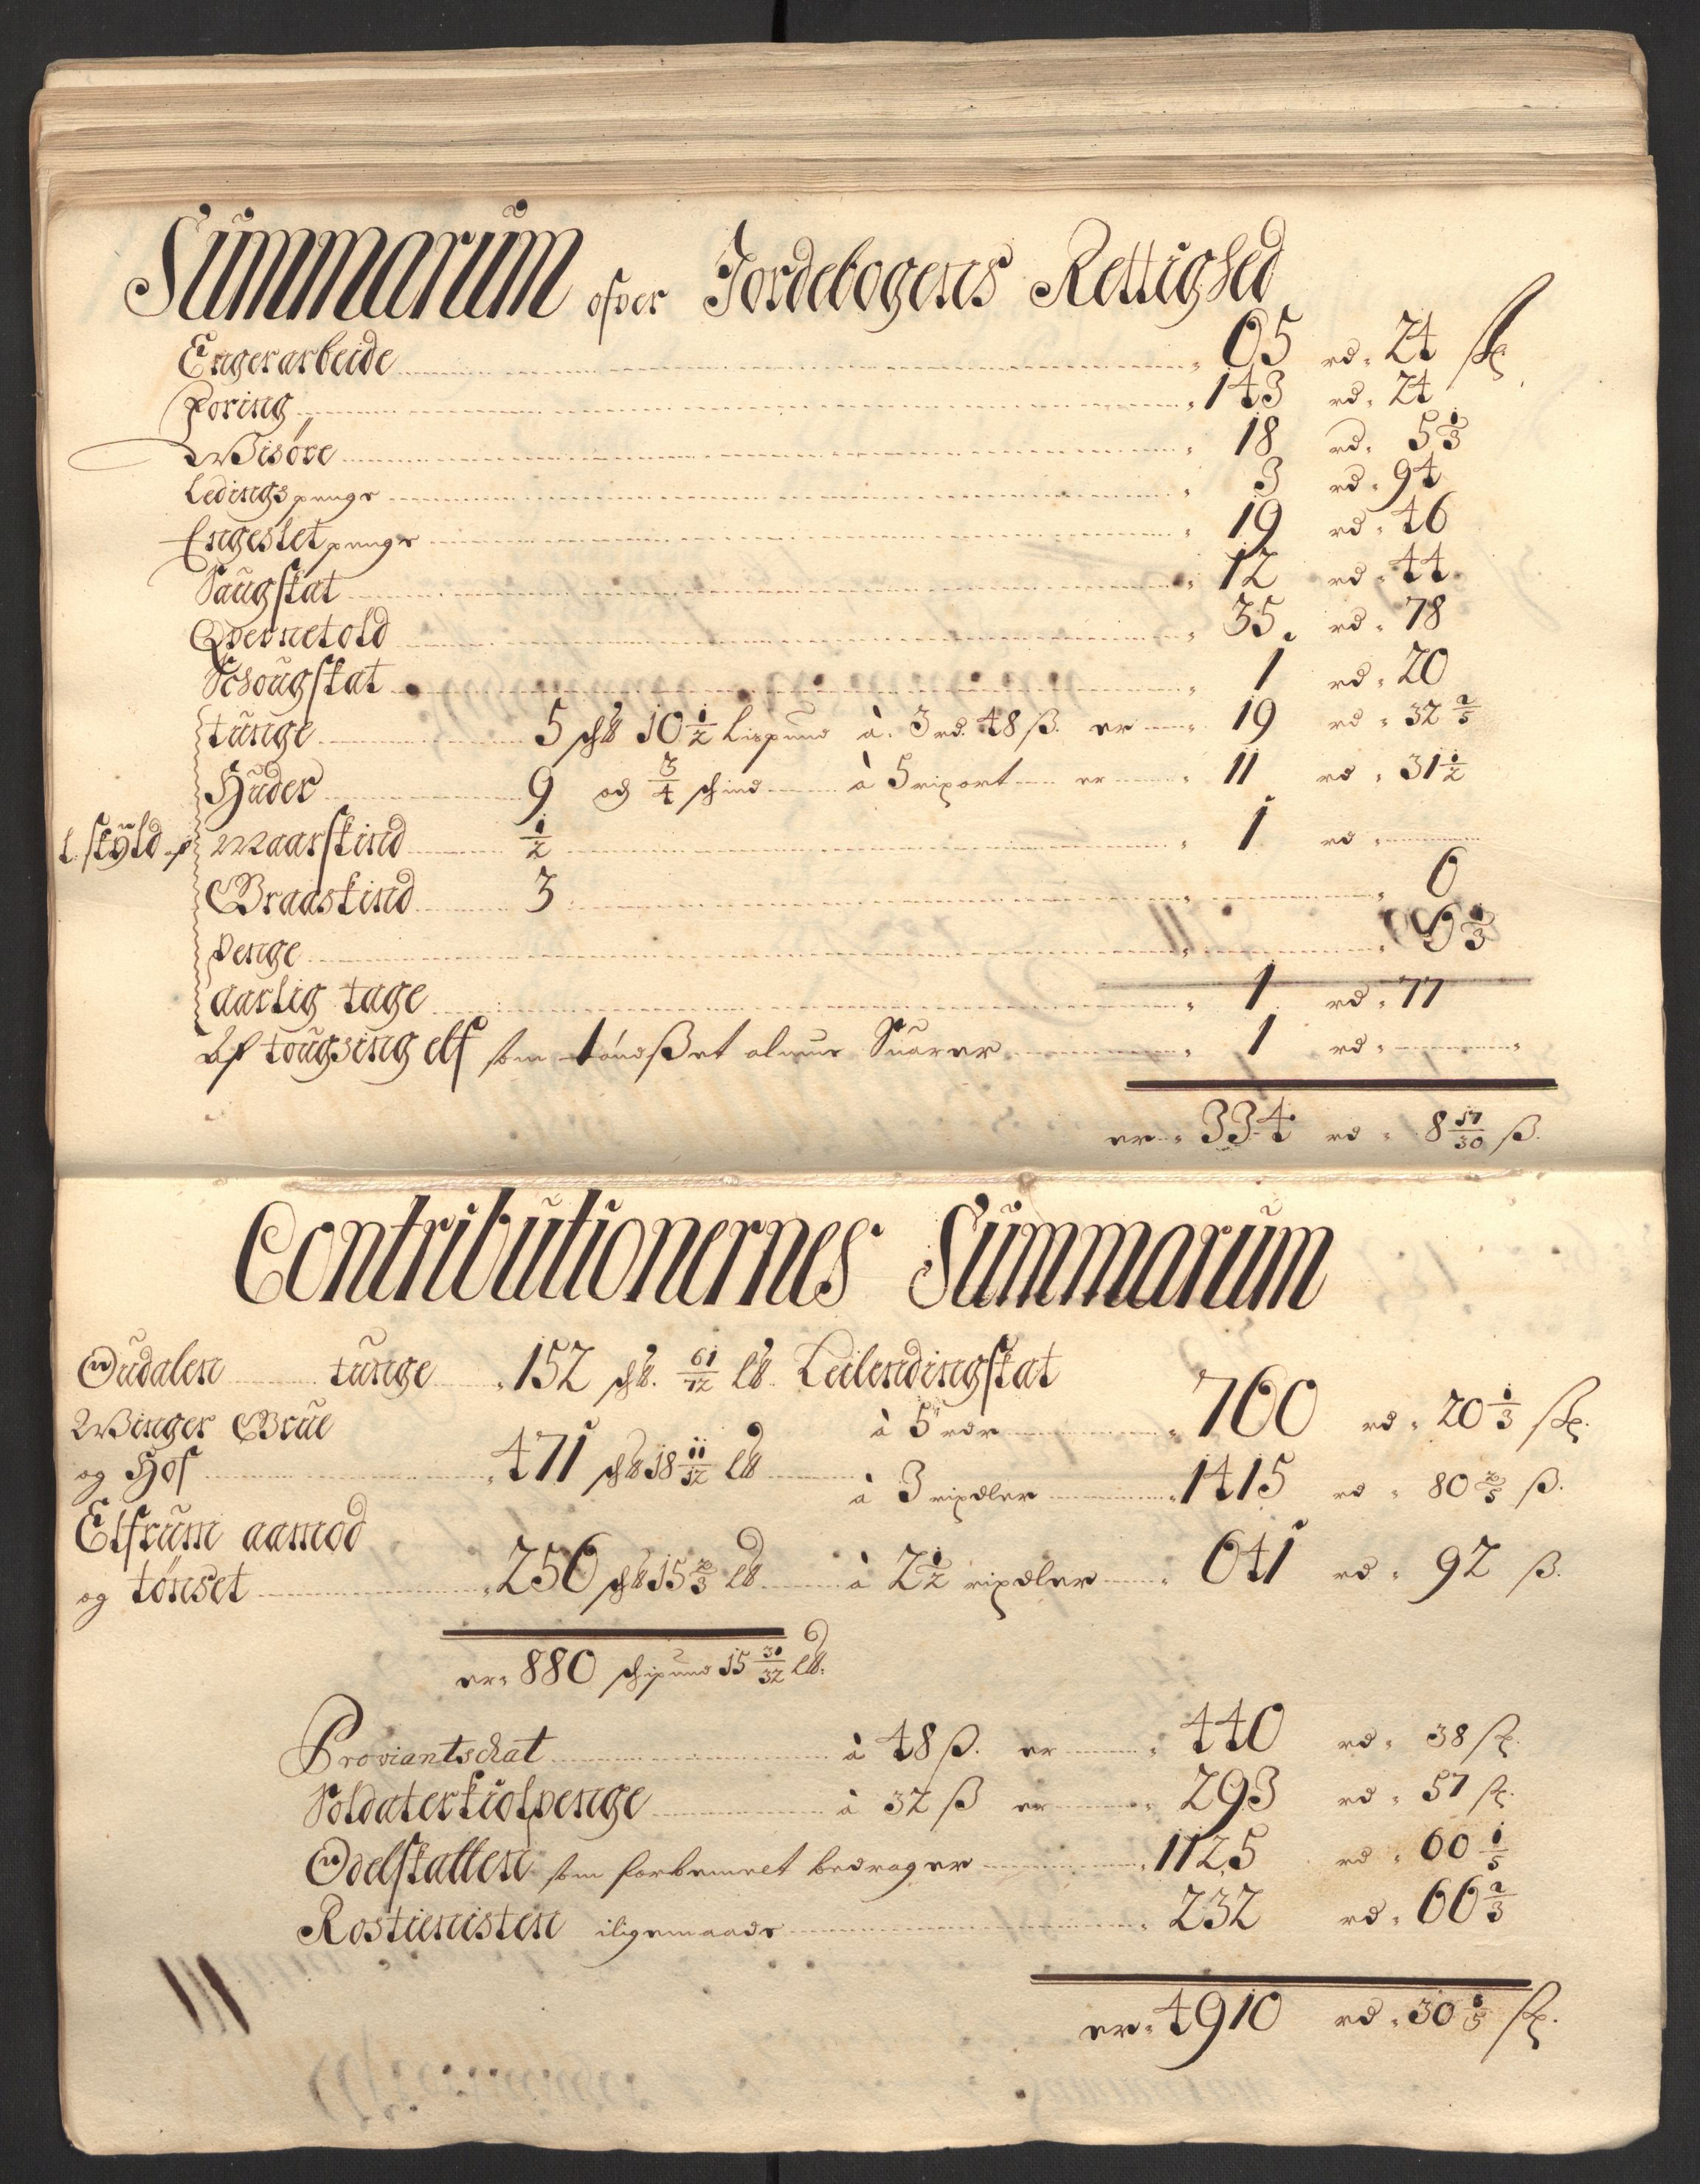 Summarum ofver Jordebogens Rettighed
Engerarbeide 65 rd. 24 ß
Foring 143 rd. 24
Wisøre 18 rd. 5 1/3
Ledings penge 3 rd. 94
Engeslet penge 19 rd. 46
Saugskat 12 rd. 44
Qvernetold 35 rd. 78
Schougskat 1 rd. 20
L. skyld tunge 5 sch℔ 10 1/2 Lispund à 3 rd. 48 ß. er 19 rd. 32 2/5
Huder 9 og 3/4 schind à 5 riport er 11 rd. 31 1/2
Maarskind 1/2 1 rd.
Graaskind 3 6
Penge 6 1/3
aarlig tage 1 rd. 77
Af tougsing elf som tøndßet almue Suarer 1 rd.
er 334 rd. 8 17/30 ß.
Contributionernes Summarum
Oudalen tunge 152 sch℔. 61/72 L℔. Leilendingskat
à 5 rdr 760 rd. 20 1/3 ß.
Winger Grue
og Hof 471 sch℔ 18 11/12 L℔ à 3 ripdler 1415 rd. 80 2/5 ß.
Elfrum aamod
og tønset 256 sch℔ 15 2/3 L℔ à 2 1/2 ripdler 641 rd. 92 ß.
er 880 schipund 15 31/32 L℔.
Proviantschat à 48 ß. er 440 rd. 38 ß.
Soldaterkiolpenge à 32 ß er 293 rd. 57 ß.
Odelskatten som forbemelt bedrager 1125 rd. 60 1/5
Rostienisten iligemaade 232 rd. 66 2/3
er 4910 rd. 30 3/5 ß.